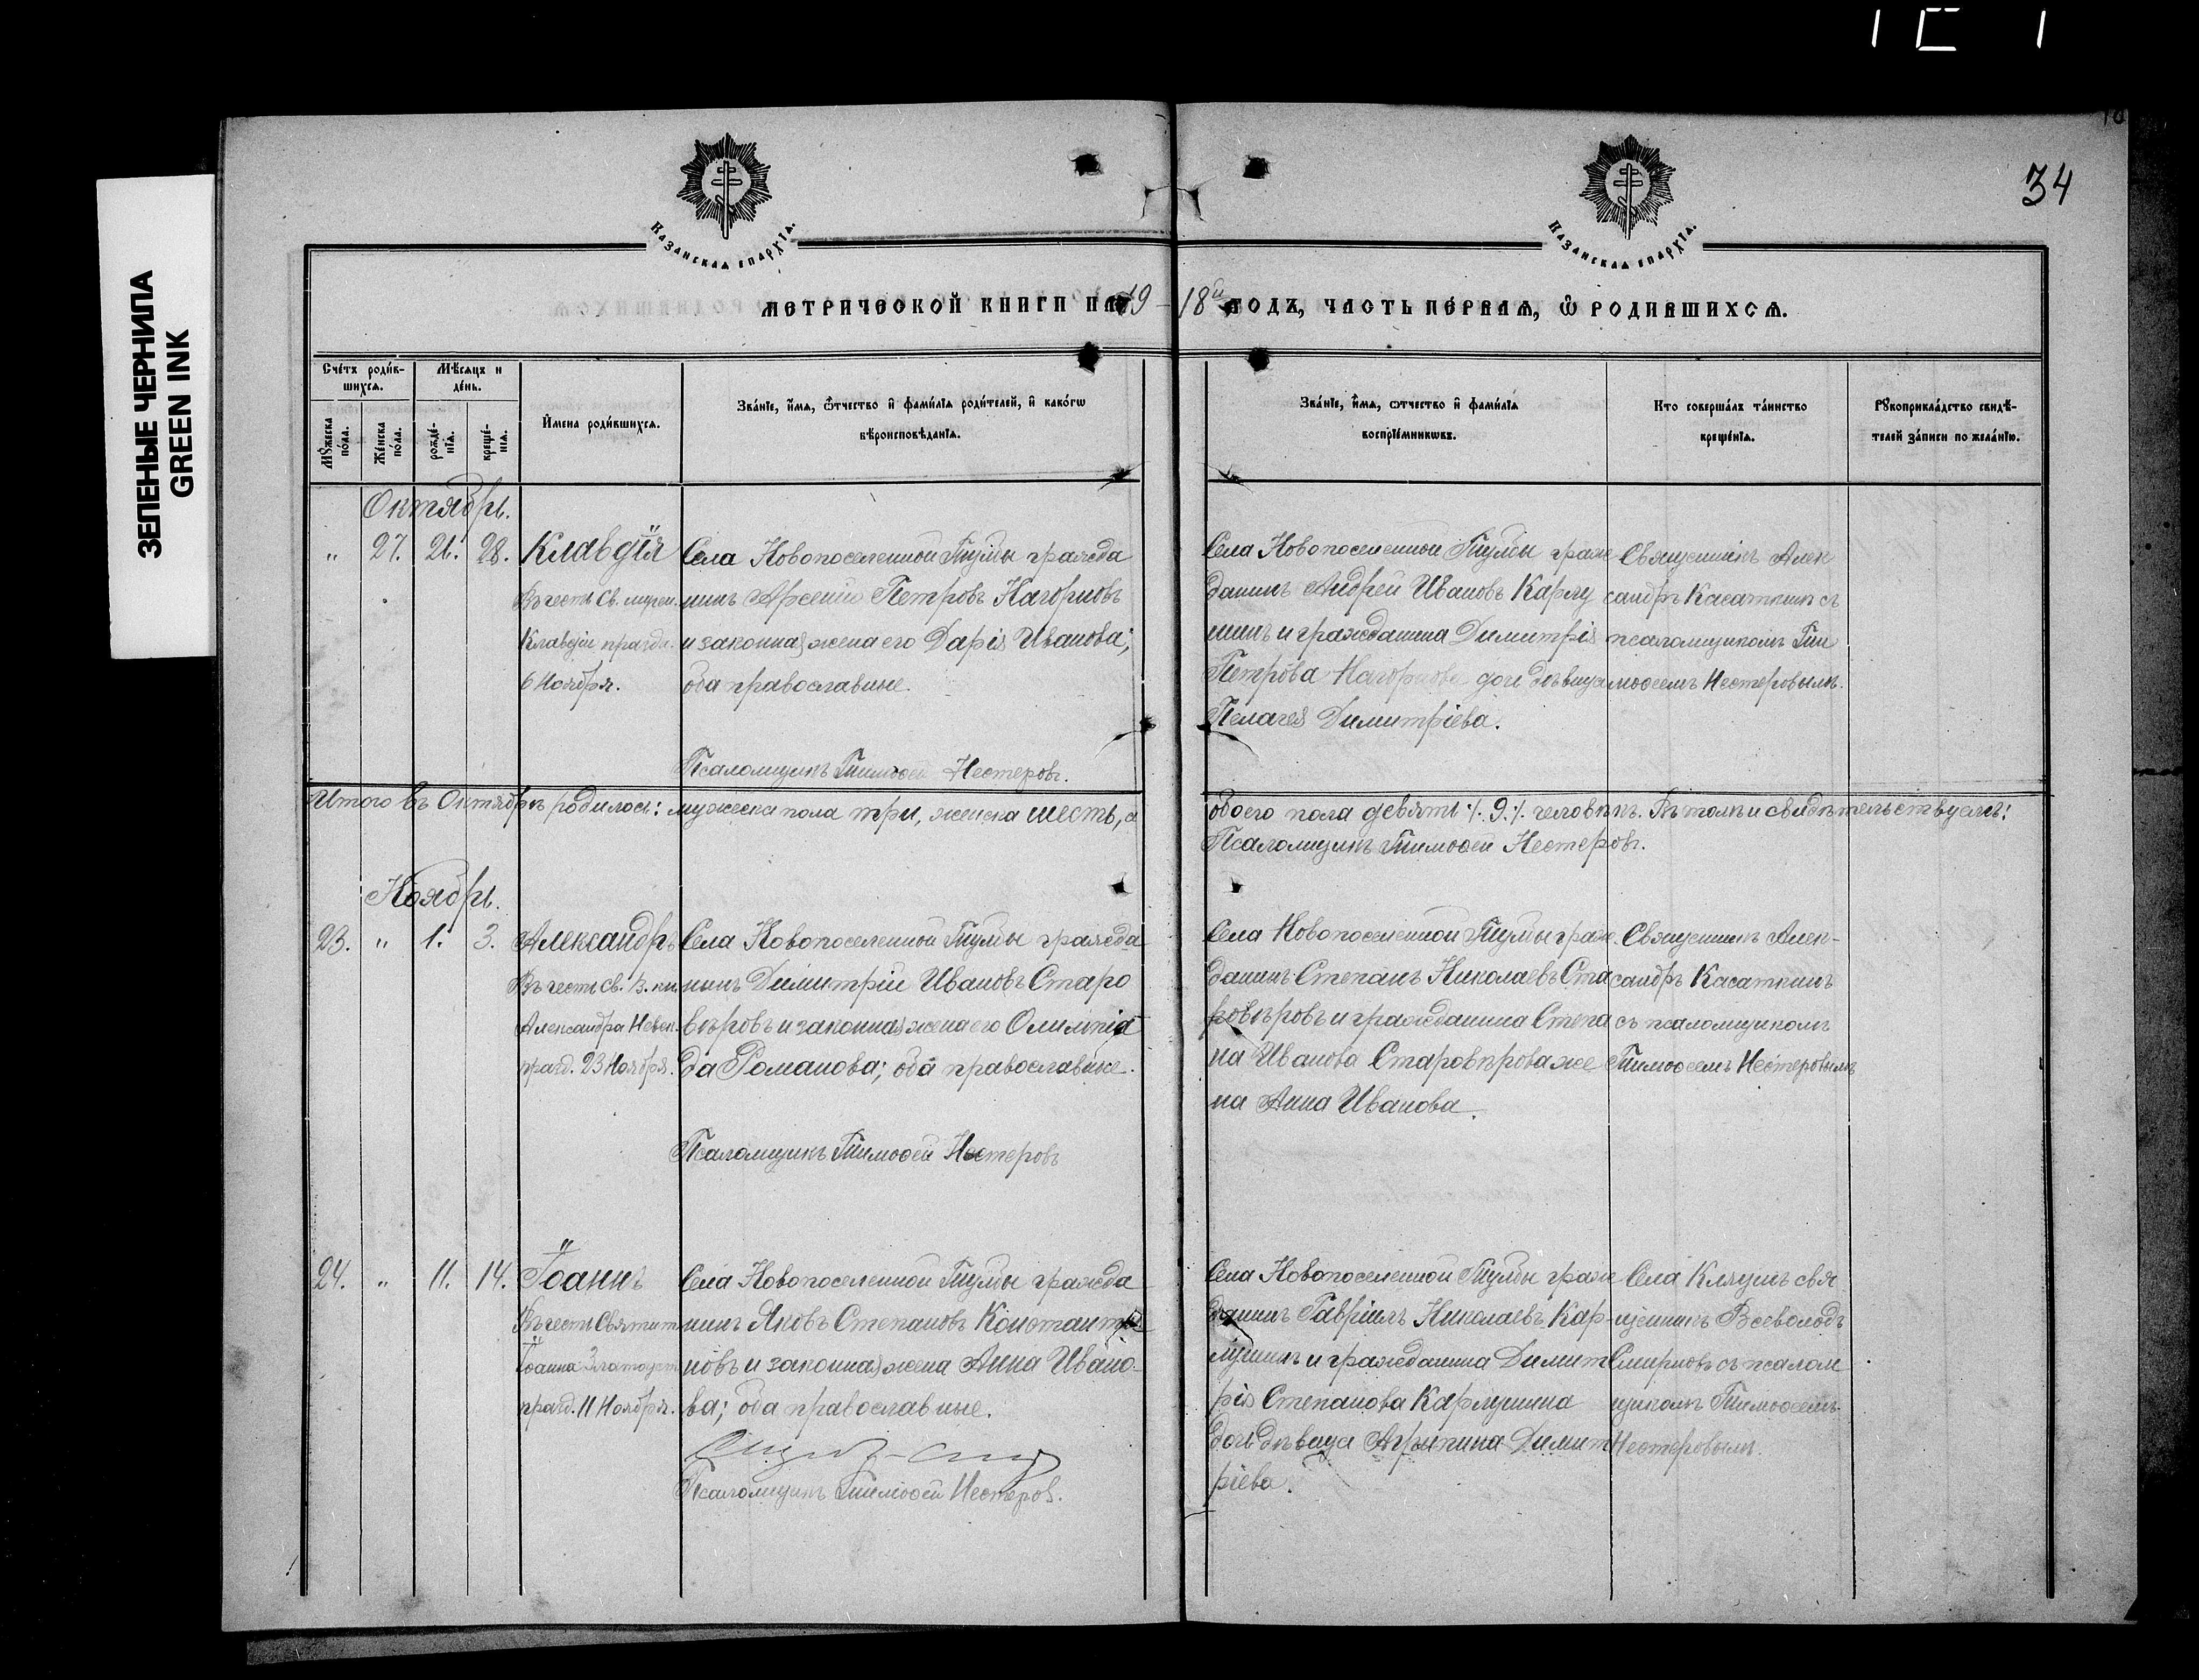 ЗЕЛЕНЫЕ ЧЕРНИЛА
GREEN INK
34
Казанская епархїѧ.
Казанская епархїѧ.
метрической книги на 19-18й годъ, часть первая, ѿ родившихся.
Счетъ родив-
шихся.
Мѣсяцъ и
день.
Мужеска
пола.
Женска
пола.
рожде-
нія.
креще-
нія.
Имена родившихся.
Званіе, имя, отчество и фамилія родителей, и какого
вѣроисповѣданія.
Званіе, имя, отчество и фамилія
воспріемниковъ.
Кто совершалъ таинство
крещенія.
Рукоприкладство свидѣ-
телей записи по желанію.
Октябрь.
" 27. 21. 28.
Клавдія
Въ честь св. мучен.
Клавдіи празд.
6 Ноября.
Села Новопоселенной Тумбы гражда
нинъ Арсеній Петровъ Нагорновъ
и законная жена его Дарія Иванова;
оба православные.
Псаломщикъ Тимоѳей Нестеровъ.
Села Новопоселенной Тумбы граж
данинъ Андрей Ивановъ Карлу
шинъ и гражданина Димитрія
Петрова Нагорнова дочь дѣвица
Пелагея Димитріева.
Священникъ Алек
сандръ Касаткинъ съ
псаломщикомъ Тим
моѳеемъ Нестеровымъ.
Итого въ Октябрѣ родилось: мужеска пола три, женска шесть, а
обоего пола девять ·/. 9 ·/. человѣкъ. Въ томъ и свидѣтельствуемъ:
Псаломщикъ Тимоѳей Нестеровъ.
Ноябрь.
23. " 1. 3.
Александръ
Въ честь св. В. кн.
Александра Невск.
празд. 23 Ноября.
Села Новопоселенной Тумбы гражда
нинъ Димитрій Ивановъ Старо
вѣровъ и законная жена его Олимпіа
да Романова; оба православные.
Псаломщикъ Тимоѳей Нестеровъ
Села Новопоселенной Тумбы граж
данинъ Степанъ Николаевъ Ста
ровѣровъ и гражданина Степа
на Иванова Старовѣрова же
на Анна Иванова.
Священникъ Алек-
сандръ Касаткинъ
съ псаломщикомъ
Тимоѳеемъ Нестеровымъ
24. " 11. 14.
Іоаннъ
Въ честь Святит
Іоанна Златоуст
празд. 11 Ноября.
Села Новопоселенной Тумбы гражда
нинъ Яковъ Степановъ Константи
новъ и законная жена Анна Ивано-
ва; оба православные.
Псаломщикъ Тимоѳей Нестеровъ.
Села Новопоселенной Тумбы граж
данинъ Гавріилъ Николаевъ Кар-
лушинъ и гражданина Димит
рія Степанова Карлушина
дочь дѣвица Агрипина Димит
ріева.
Села Кляушъ свя
щенникъ Всеволодъ
Смирновъ съ псалом
щикомъ Тимоѳеемъ
Нестеровымъ.